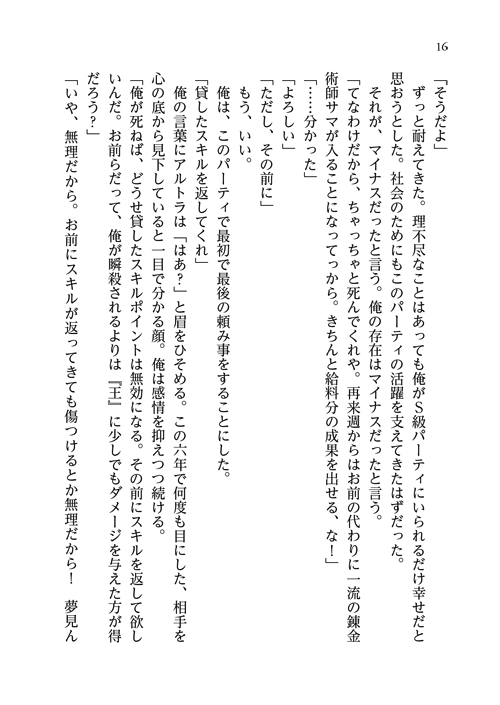 16
「そうだよ」
　ずっと耐えてきた。理不尽なことはあっても俺がＳ級パーティにいられるだけ幸せだと
思おうとした。社会のためにもこのパーティの活躍を支えてきたはずだった。
　それが、マイナスだったと言う。俺の存在はマイナスだったと言う。
「てなわけだから、ちゃっちゃと死んでくれや。再来週からはお前の代わりに一流の錬金
術師サマが入ることになってっから。きちんと給料分の成果を出せる、な！」
「……分かった」
「よろしい」
「ただし、その前に」
　もう、いい。
　俺は、このパーティで最初で最後の頼み事をすることにした。
「貸したスキルを返してくれ」
　俺の言葉にアルトラは「はあ？」と眉をひそめる。この六年で何度も目にした、相手を
心の底から見下していると一目で分かる顔。俺は感情を抑えつつ続ける。
「俺が死ねば、どうせ貸したスキルポイントは無効になる。その前にスキルを返して欲し
いんだ。お前らだって、俺が瞬殺されるよりは『王』に少しでもダメージを与えた方が得
だろう？」
「いや、無理だから。お前にスキルが返ってきても傷つけるとか無理だから！　夢見ん